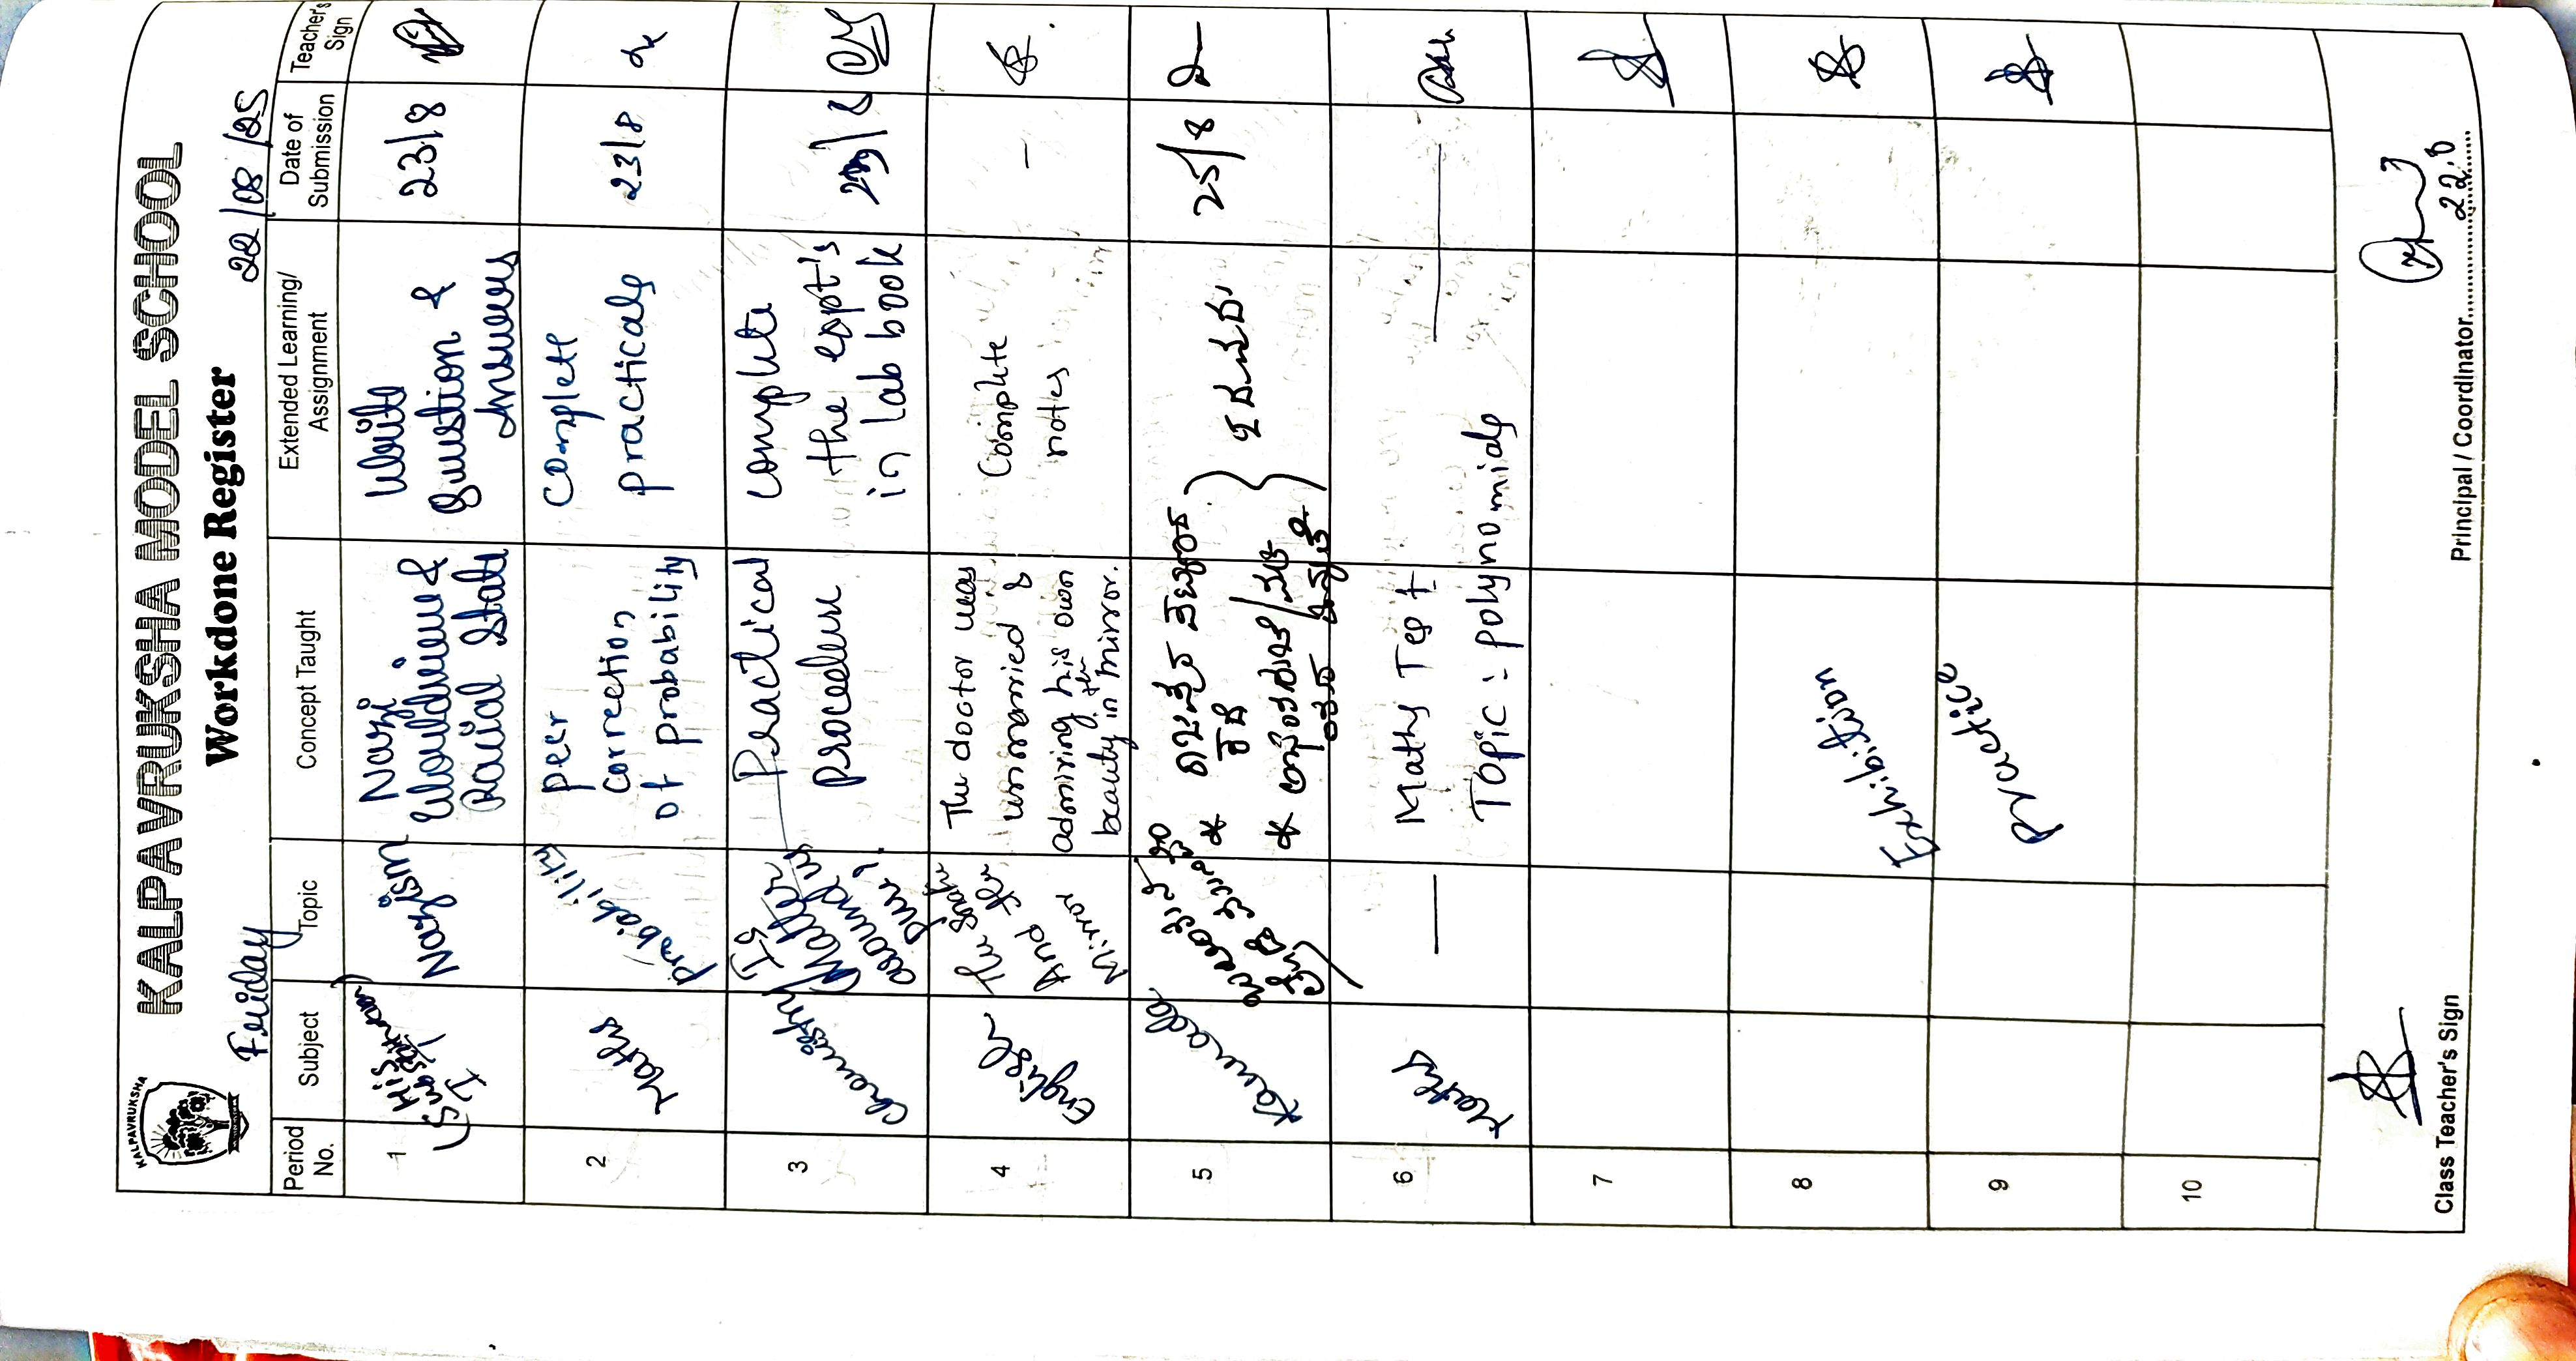 KALPAVRUKSHA
KALPAVRUKSHA MODEL SCHOOL
Workdone Register
Friday
22/08/25
Period No.
Subject
Topic
Concept Taught
Extended Learning/ Assignment
Date of Submission
Teacher's Sign
1
His
Nazism
Nazi
Worldview &
Racial State
Write
Question &
Answers
23/8
2
Maths
Probability
peer
correction
of probability
complete
practicals
23/8
3
Chemistry
Is
Matter
around us
Pure?
Practical
procedure
complete
the expt's
in lab book
4
English
The Snake
And the
Mirror
The doctor was
unmarried &
admiring his own
beauty in the mirror.
Complete
notes
-
5
Kannada
*
*
ಬರೆಯಿರಿ
25/8
6
Maths
—
Maths Test
Topic : polynomials
—
7
8
Exhibition
9
Practice
10
Class Teacher's Sign
Principal / Coordinator
22.8